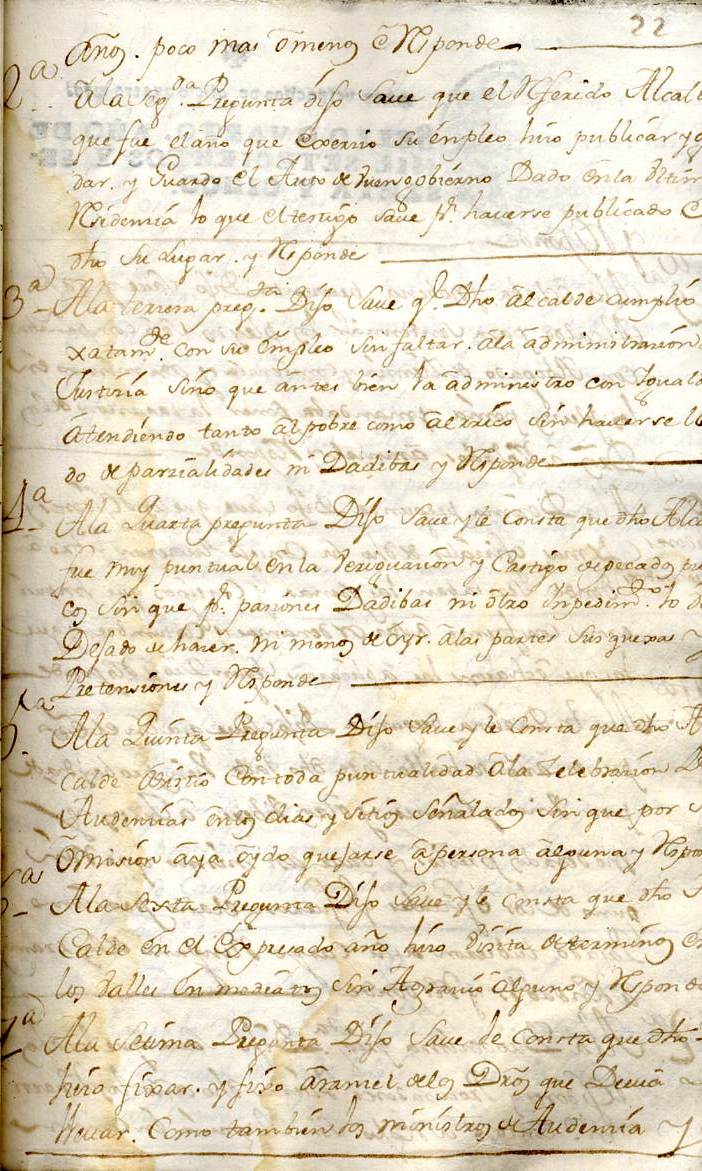 22
años. poco mas ô menos e Rsponde
2ª A la seg.da Pregunta dijo save que el Rferido Alcal
que fue el año que exerrio su empleo hizo publicar y g
dar. y Guardo el Auto de buen gobierno Dado en la
Rsidencia lo que el testigo save pr. haverse publicado
dho su Lugar. y Rsponde
3ª A la tercera preg.ta Dijo Save q.e Dho alcalde cumplio
xatam.de con su empleo sin faltar. a la administracion
Justicia sino que antes bien la administro con Igual
atendiendo tanto al pobre como al rrico sin haverse
do de parzialidades ni Dadibas y Rsponde
4ª A la Quarta pregunta Dijo Save y le Consta que dho Alca
fue muy puntual en la Veriguacion y Castigo de pecados pu
cos sin que pr. pasiones Dadibas ni otro Inpedim.to
Dejado de hacer. ni menos de oyr. a las partes sus quexas y
Pretensiones y Rsponde
5ª A la Quinta Pregunta Dijo Save y le Consta que dho A
calde Asistio Con toda puntualidad a la Zelebracion D
Audencias en los dias y sitios señalados sin que por s
Omision aya oydo quejarse a persona alguna y Rspon
6ª A la Sexta Pregunta Dijo save y le consta que dho A
Calde en el Expresado año hizo Visita de terminos e
los Valles Inmediatos sin Agravio alguno y Rsponde
7ª A la Setima Pregunta Dijo Save le Consta que dho
hizo fixar. y fixo Aranzel de los Dros que Devia
llevar. Como tambien los ministros de Audencia y